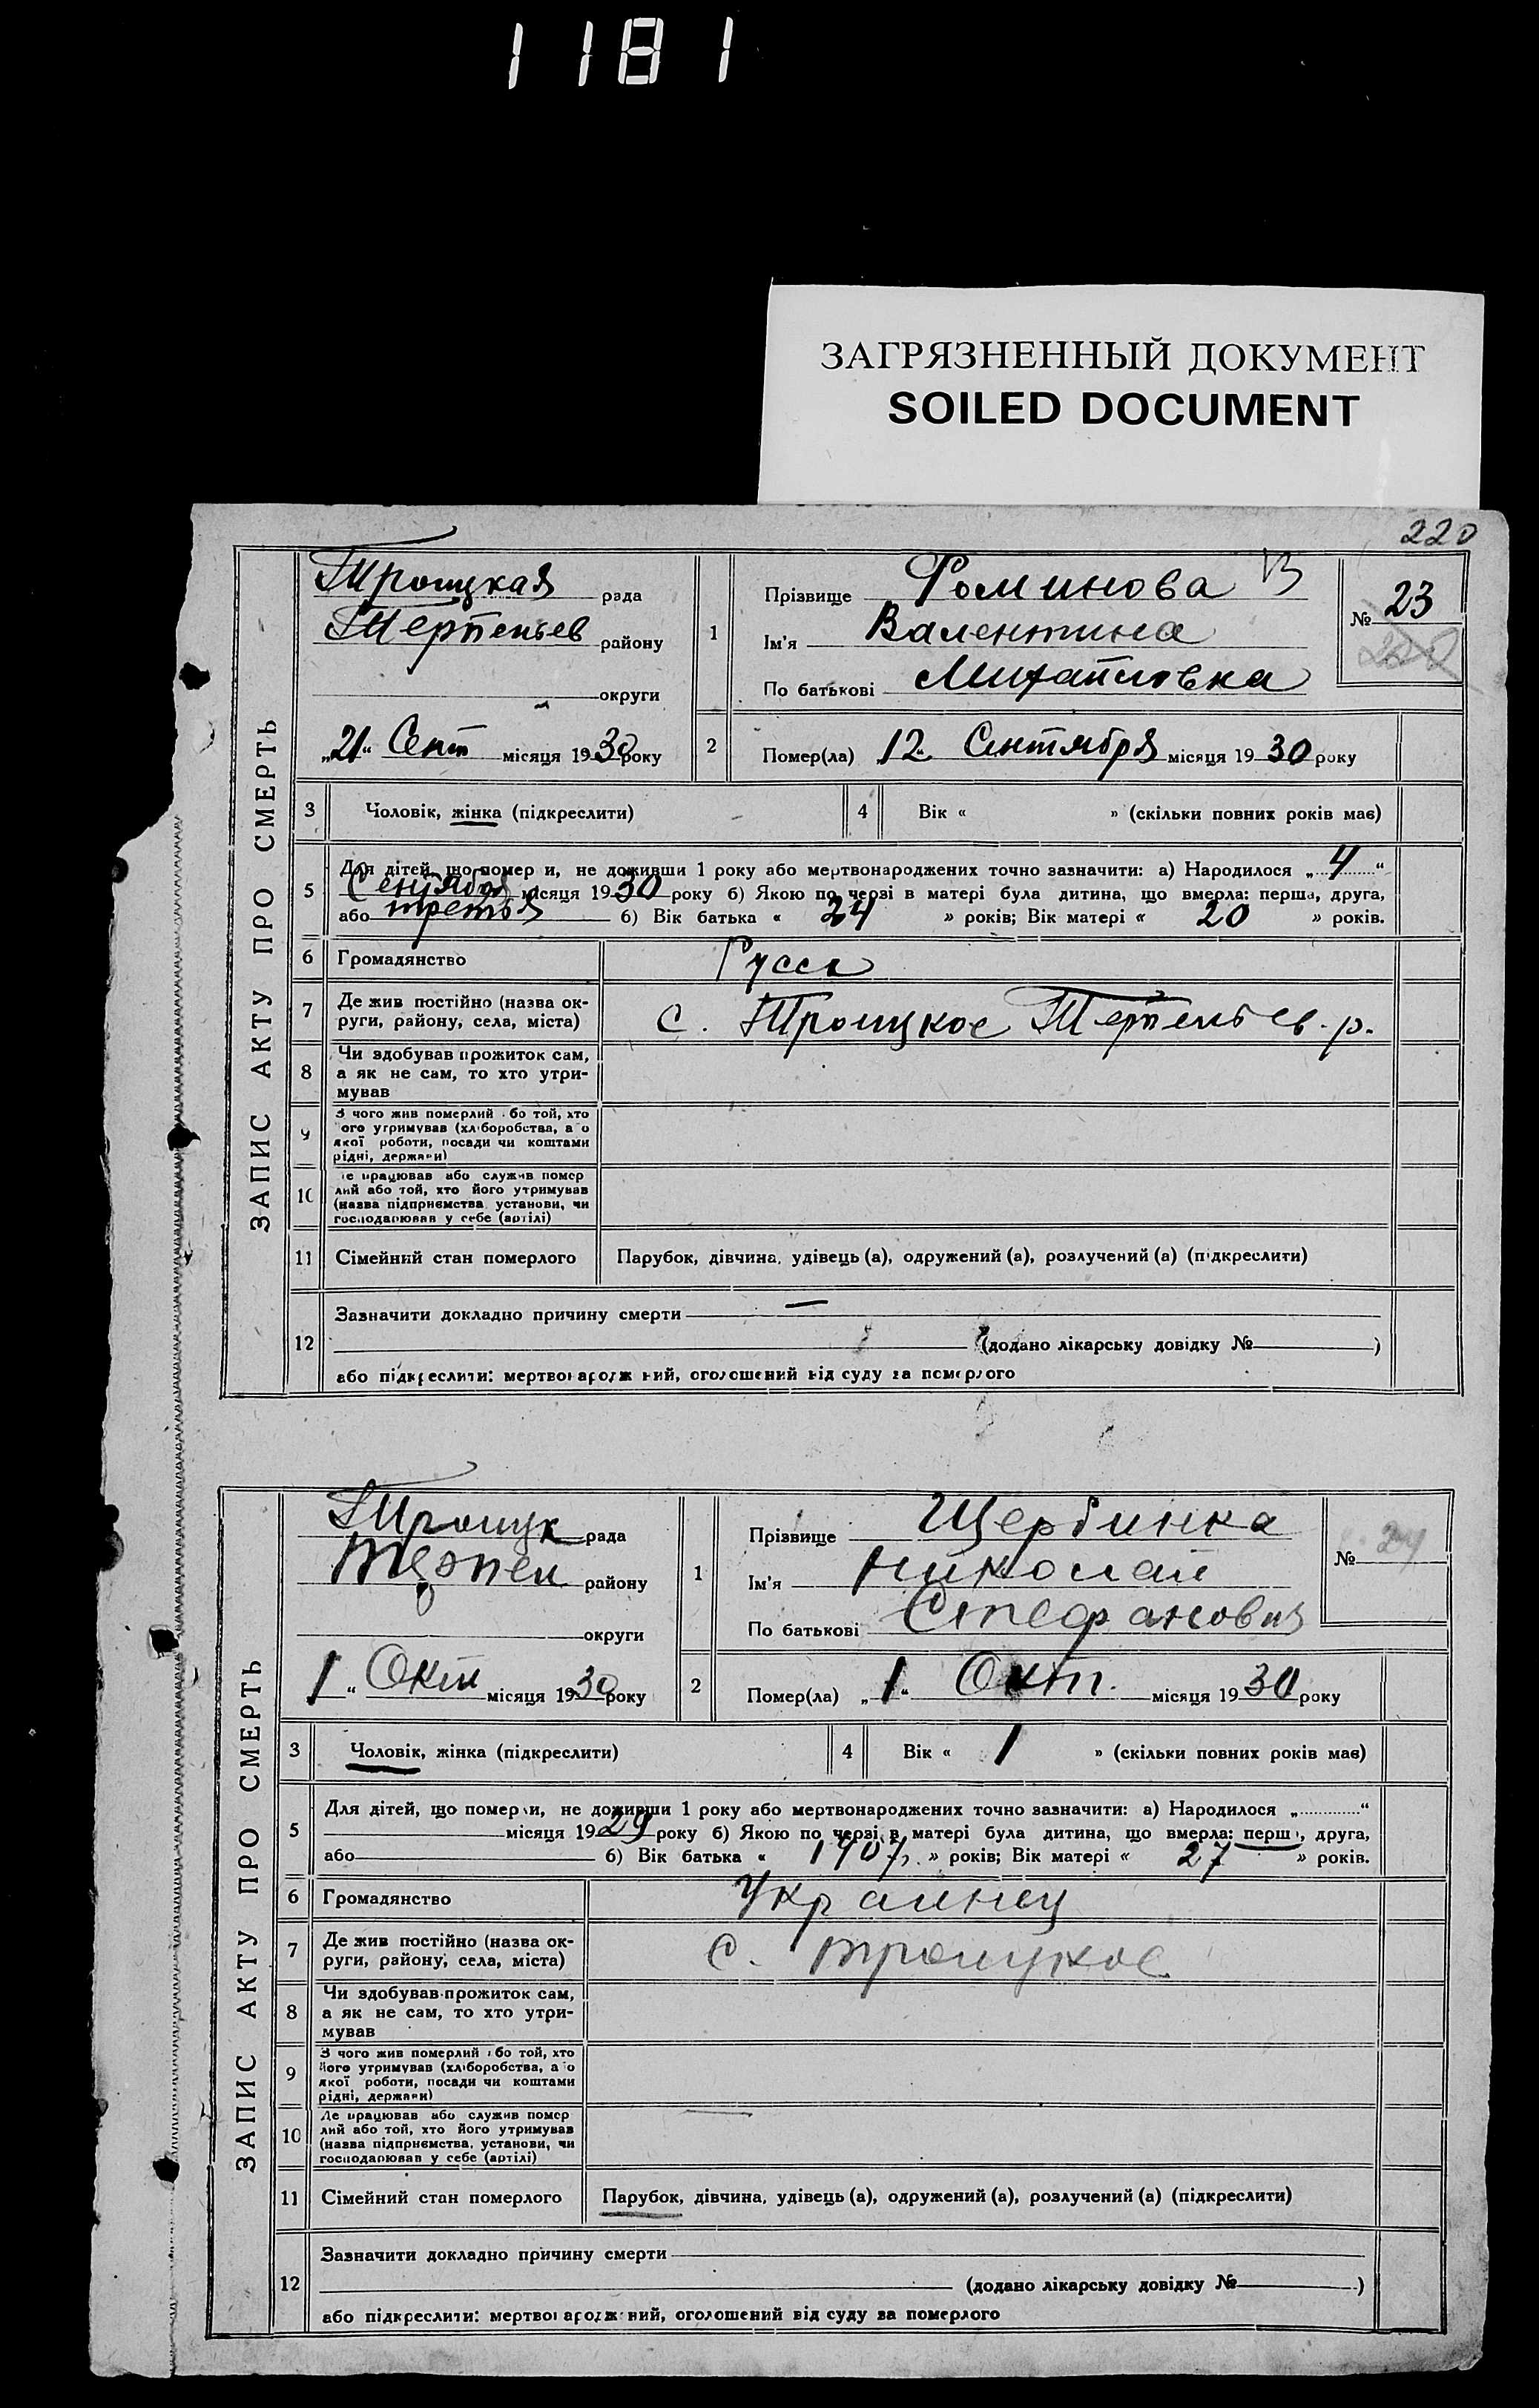 1181
ЗАГРЯЗНЕННЫЙ ДОКУМЕНТ
SOILED DOCUMENT
220
ЗАПИС АКТУ ПРО СМЕРТЬ
Троицкая рада
Терпеньев району
округи
„21“ Сент місяця 1930 року
1
Прізвище Фоминова
Ім'я Валентина
По батькові Михайловна
№ 23
2
Помер(ла) „12“ Сентября місяця 1930 року
3 Чоловік, жінка (підкреслити)
4 Вік « » (скільки повних років мав)
5 Для дітей, що померли, не доживши 1 року або мертвонароджених точно зазначити: а) Народилося „4“
Сентября місяця 1930 року б) Якою по черзі в матері була дитина, що вмерла: перша, друга,
або третья б) Вік батька « 24 » років; Вік матері « 20 » років.
6 Громадянство Русск
7 Де жив постійно (назва ок-
руги, району, села, міста) с. Троицкое Терпеньев. р.
8 Чи здобував прожиток сам,
а як не сам, то хто утри-
мував
9 З чого жив померлий або той, хто
його утримував (хліборобства, або
якої роботи, посади чи коштами
рідні, держави)
10 Де працював або служив помер
лий або той, хто його утримував
(назва підприємства, установи, чи
господарював у себе (артілі)
11 Сімейний стан померлого Парубок, дівчина, удівець (а), одружений (а), розлучений (а) (підкреслити)
12 Зазначити докладно причину смерти —
(додано лікарську довідку № )
або підкреслити: мертвонароджений, оголошений від суду за померлого
ЗАПИС АКТУ ПРО СМЕРТЬ
Троицк рада
Терпен району
округи
1 “ Окт місяця 1930 року
1
Прізвище Щербинка
Ім'я Николай
По батькові Стефанович
№ 24
2
Помер(ла) „1“ Окт. місяця 1930 року
3 Чоловік, жінка (підкреслити)
4 Вік « 1 » (скільки повних років мав)
5 Для дітей, що померли, не доживши 1 року або мертвонароджених точно зазначити: а) Народилося „ “
місяця 1929 року б) Якою по черзі в матері була дитина, що вмерла: перша, друга,
або б) Вік батька « 1907 р. » років; Вік матері « 27 » років.
6 Громадянство Украинец
7 Де жив постійно (назва ок-
руги, району, села, міста) с. Троицкое
8 Чи здобував прожиток сам,
а як не сам, то хто утри-
мував
9 З чого жив померлий або той, хто
його утримував (хліборобства, або
якої роботи, посади чи коштами
рідні, держави)
10 Де працював або служив помер
лий або той, хто його утримував
(назва підприємства, установи, чи
господарював у себе (артілі)
11 Сімейний стан померлого Парубок, дівчина, удівець (а), одружений (а), розлучений (а) (підкреслити)
12 Зазначити докладно причину смерти
(додано лікарську довідку № )
або підкреслити: мертвонароджений, оголошений від суду за померлого